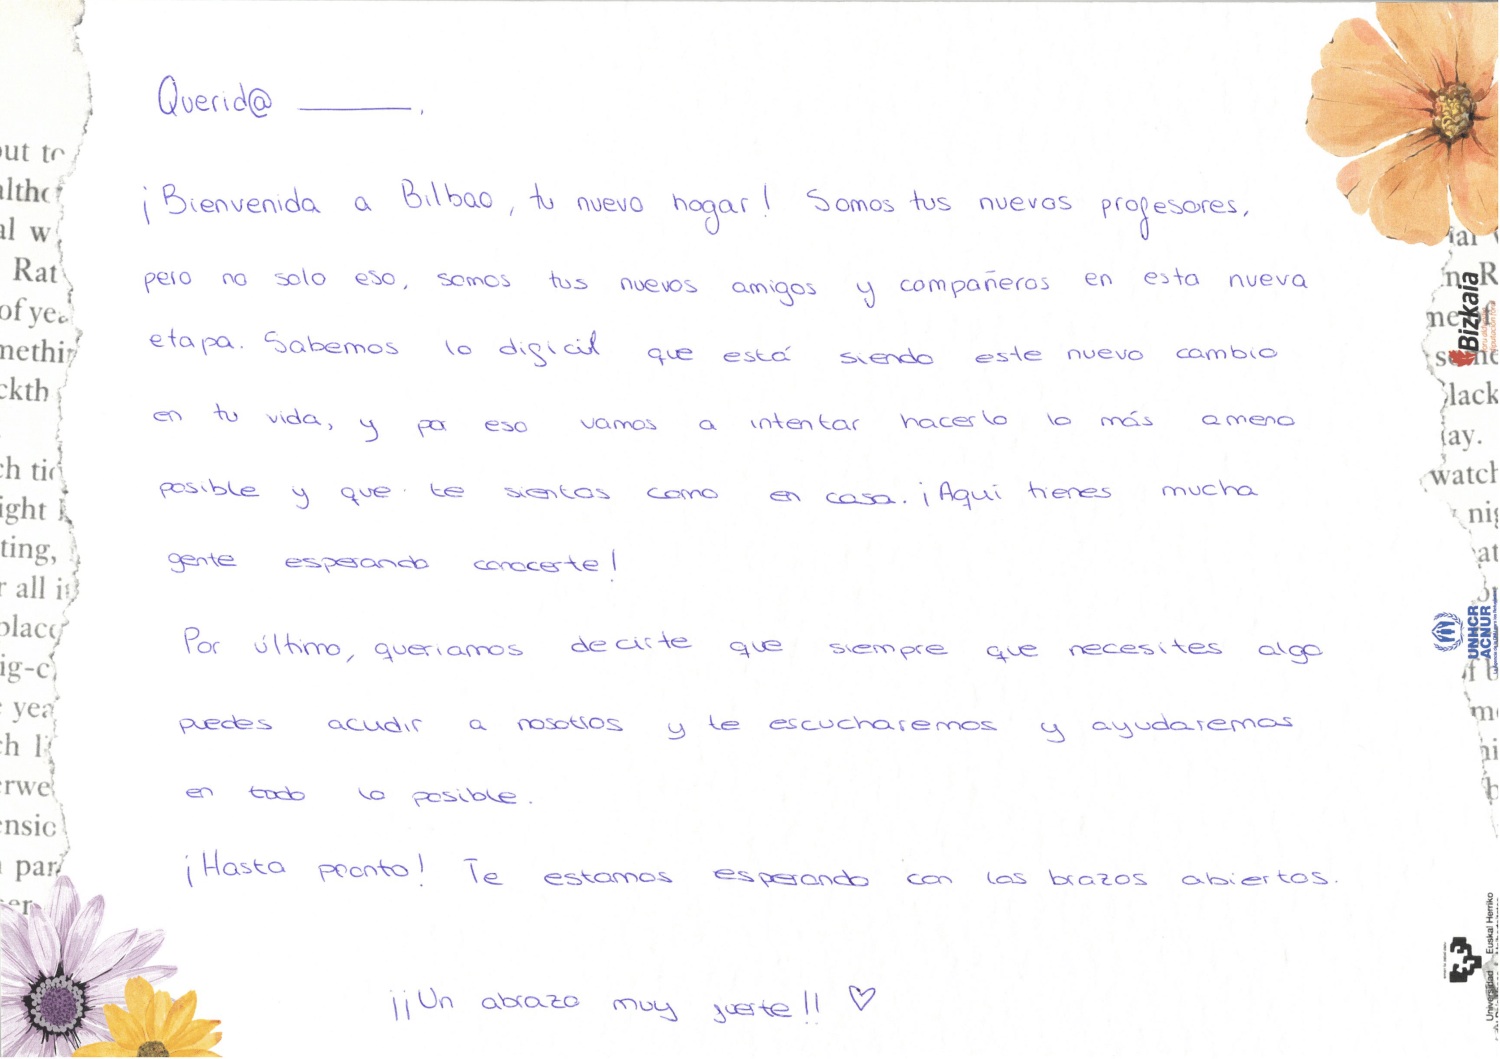 Querid@ ______.
¡Bienvenida a Bilbao, tu nuevo hogar! Somos tus nuevos profesores,
pero no solo eso, somos tus nuevos amigos y compañeros en esta nueva
etapa. Sabemos lo difícil que está siendo este nuevo cambio
en tu vida, y por eso vamos a intentar hacerlo lo más ameno
posible y que te sientas como en casa. ¡Aquí tienes mucha
gente esperando conocerte!
Por último, queriamos decirte que siempre que necesites algo
puedes acudir a nosotros y te escucharemos y ayudaremos
en todo lo posible.
¡Hasta pronto! Te estamos esperando con los brazos abiertos.
¡¡Un abrazo muy fuerte!! ♡
out to
altho
al w
Rat
of yea
methin
ckth
ch tic
ight
ting,
r all i
place
ig-c
yea
ch li
erwe
ensic
par
er
n R
me of
lack
ay.
watch
nig
at
Bizkaia
UNHCR
ACNUR
Universidad Euskal Herriko